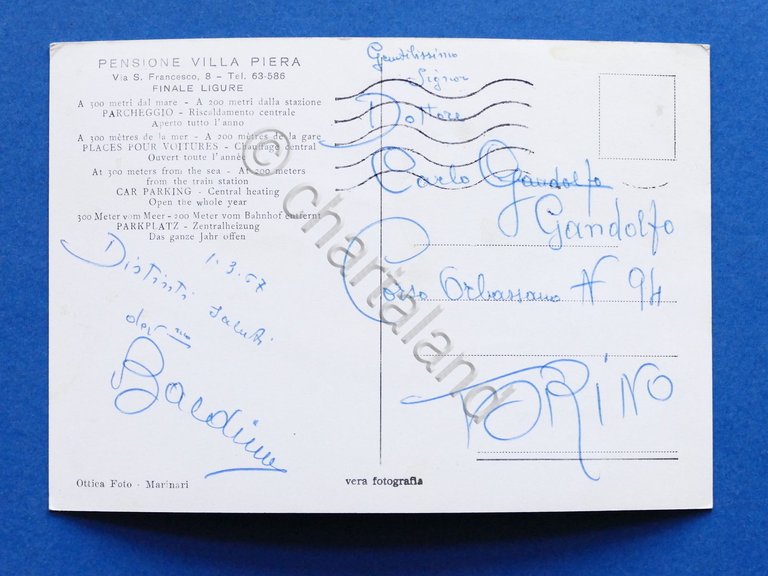 PENSIONE VILLA PIERA
Via S. Francesco, 8 - Tel. 63-586
FINALE LIGURE
A 300 metri dal mare - A 200 metri dalla stazione
PARCHEGGIO - Riscaldamento centrale
Aperto tutto l'anno
A 300 mètres de la mer - A 200 mètres de la gare
PLACES POUR VOITURES - Chauffage central
Ouvert toute l'année
At 300 meters from the sea - At 200 meters
from the train station
CAR PARKING - Central heating
Open the whole year
300 Meter vom Meer - 200 Meter vom Bahnhof entfernt
PARKPLATZ - Zentralheizung
Das ganze Jahr offen
1.3.67
Distinti saluti
dev mo
Bardino
Ottica Foto - Marinari
vera fotografia
Gentilissimo
Signor
Dottore
Carlo Gandolfo
Gandolfo
Corso Orbassano N 94
TORINO
© chartaland